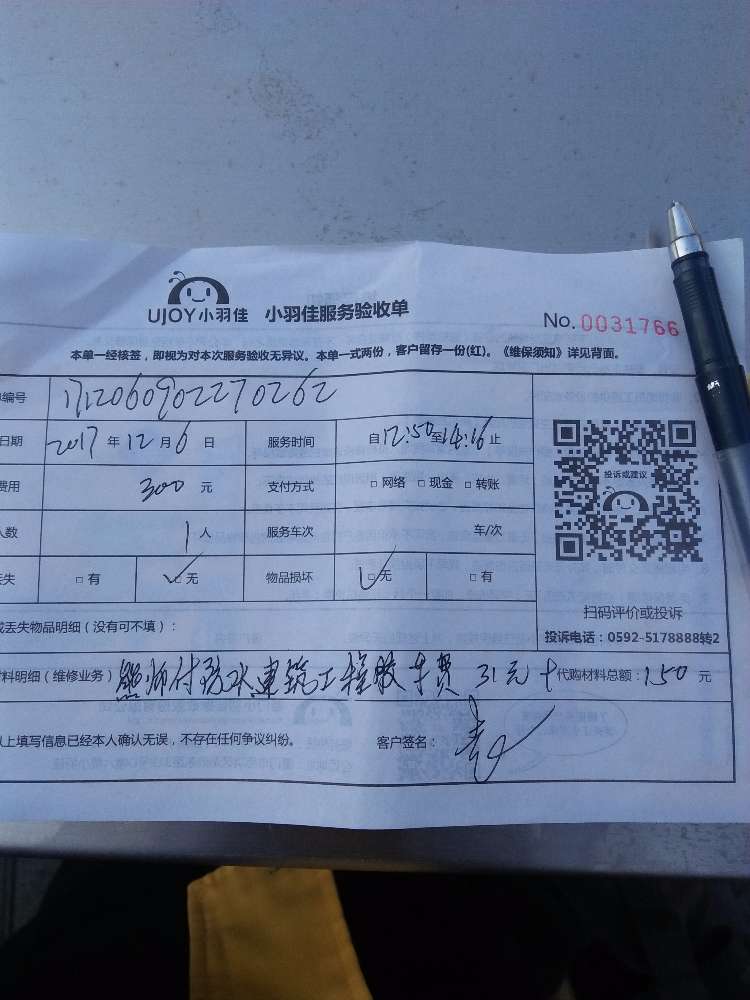 UJOY小羽佳 小羽佳服务验收单
No. 0031766
本单一经核签，即视为对本次服务验收无异议。本单一式两份，客户留存一份(红)。《维保须知》详见背面。
编号 1712060902270262
日期 2017 年 12 月 6 日 服务时间 自12:50至14:16止
费用 300 元 支付方式 □ 网络 □ 现金 □ 转账
人数 1 人 服务车次 车/次
丢失 □ 有 □ 无 物品损坏 □ 无 □ 有
投诉或建议
扫码评价或投诉
投诉电话：0592-5178888转2
或丢失物品明细（没有可不填）：
材料明细（维修业务） 熊师付防水建筑工程胶 车费 31元+ 代购材料总额：150 元
以上填写信息已经本人确认无误，不存在任何争议纠纷。 客户签名：